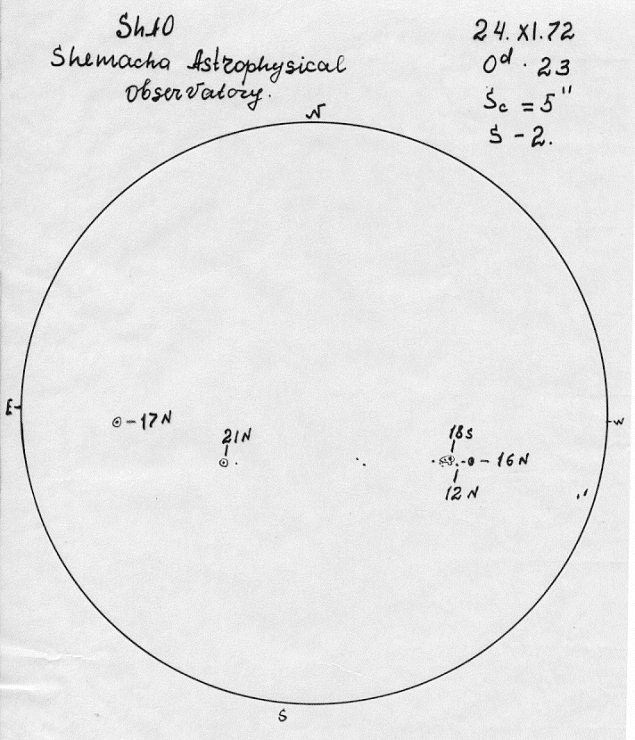 ShAO
Shemacha Astrophysical
Observatory.
24.XI.72
0ᵈ.23
Sc = 5"
S - 2.
N
E
W
17N
21N
18S
16N
12N
S